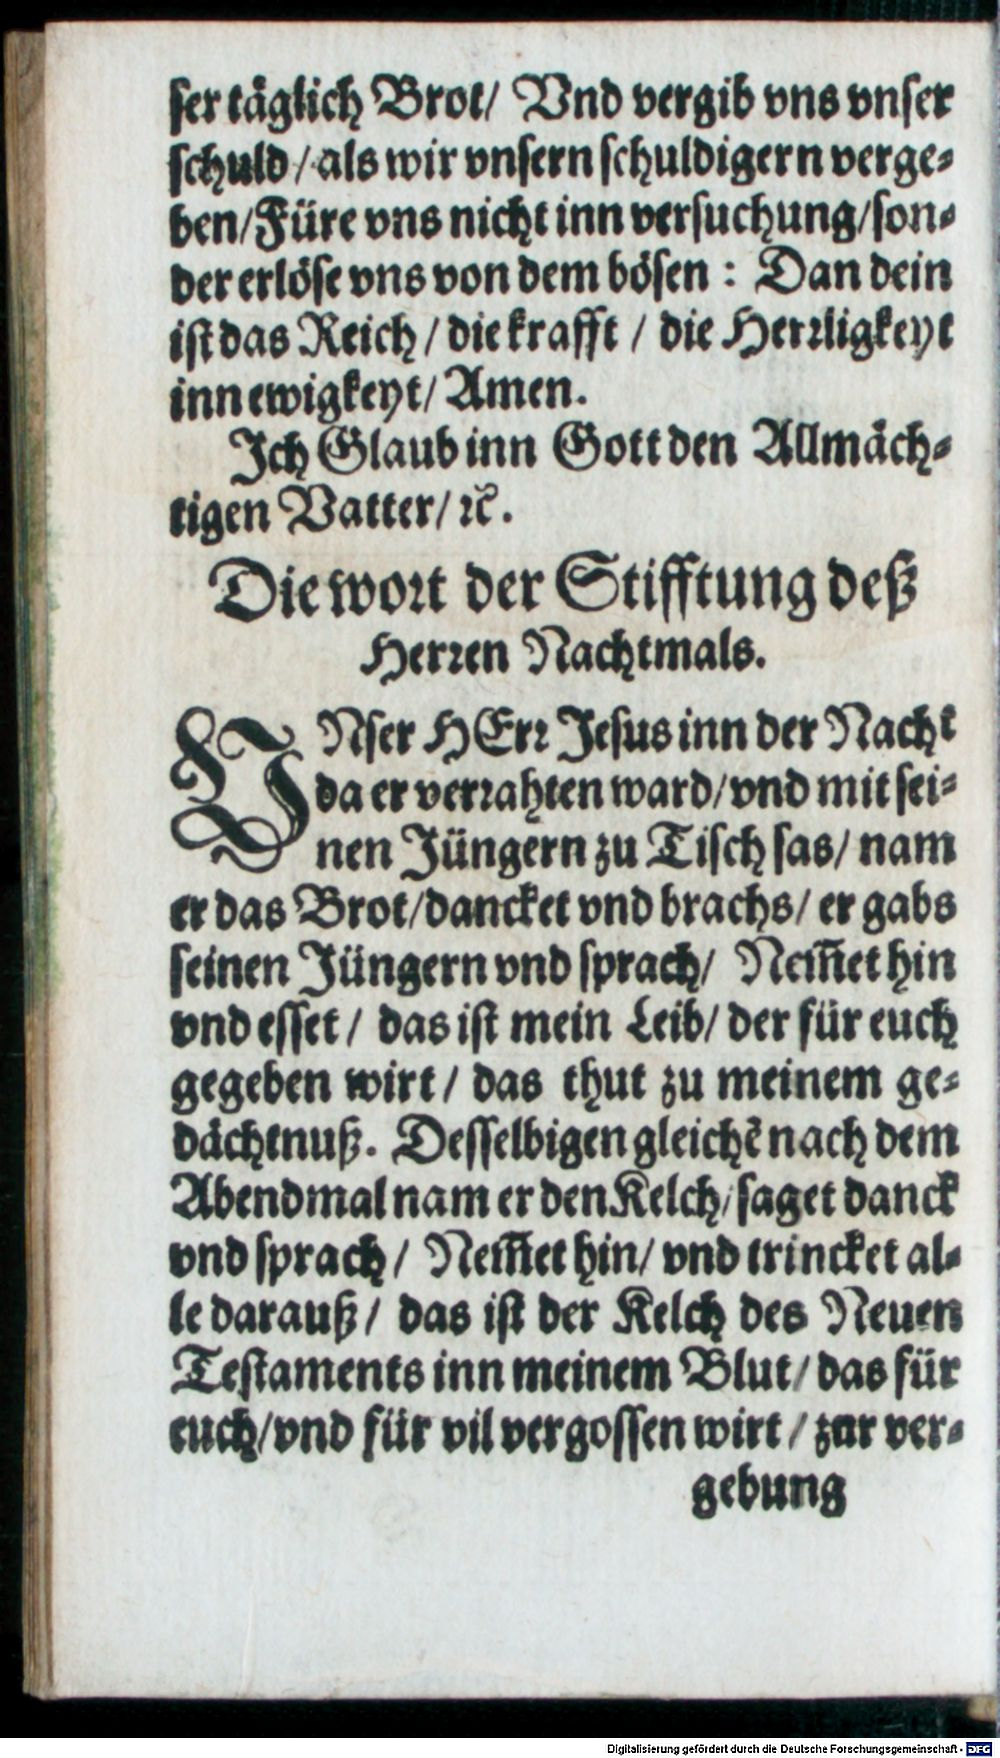 ser täglich Brot/ Vnd vergib vns vnser
schuld / als wir vnsern schuldigern verge-
ben/Füre vns nicht inn versuchung/son-
der erlöse vns von dem bösen : Dan dein
ist das Reich / die krafft / die Herrligkeyt
inn ewigkeyt/ Amen.
Jch Glaub inn Gott den Allmäch-
tigen Vatter/ ꝛc̃.
Die wort der Stifftung deß
Herren Nachtmals.
VNser HErr Jesus inn der Nacht
da er verrahten ward/vnd mit sei-
nen Jüngern zu Tisch sas/ nam
er das Brot/dancket vnd brachs/ er gabs
seinen Jüngern vnd sprach/ Nem̃et hin
vnd esset / das ist mein Leib/ der für euch
gegeben wirt / das thut zu meinem ge-
dächtnuß. Desselbigen gleichẽ nach dem
Abendmal nam er den Kelch/saget danck
vnd sprach / Nem̃et hin/ vnd trincket al-
le darauß / das ist der Kelch des Neuen
Testaments inn meinem Blut/ das für
euch/vnd für vil vergossen wirt / zur ver-
gebung
Digitalisierung gefördert durch die Deutsche Forschungsgemeinschaft - DFG